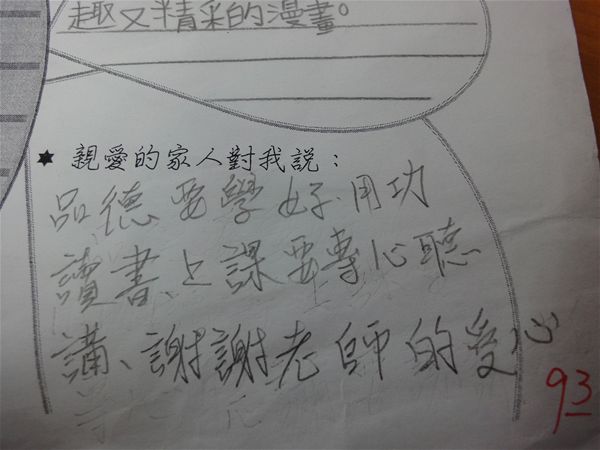 趣又精采的漫畫。
★ 親愛的家人對我說：
品德要學好.用功
讀書、上課要專心聽
講、謝謝老師的愛心
93